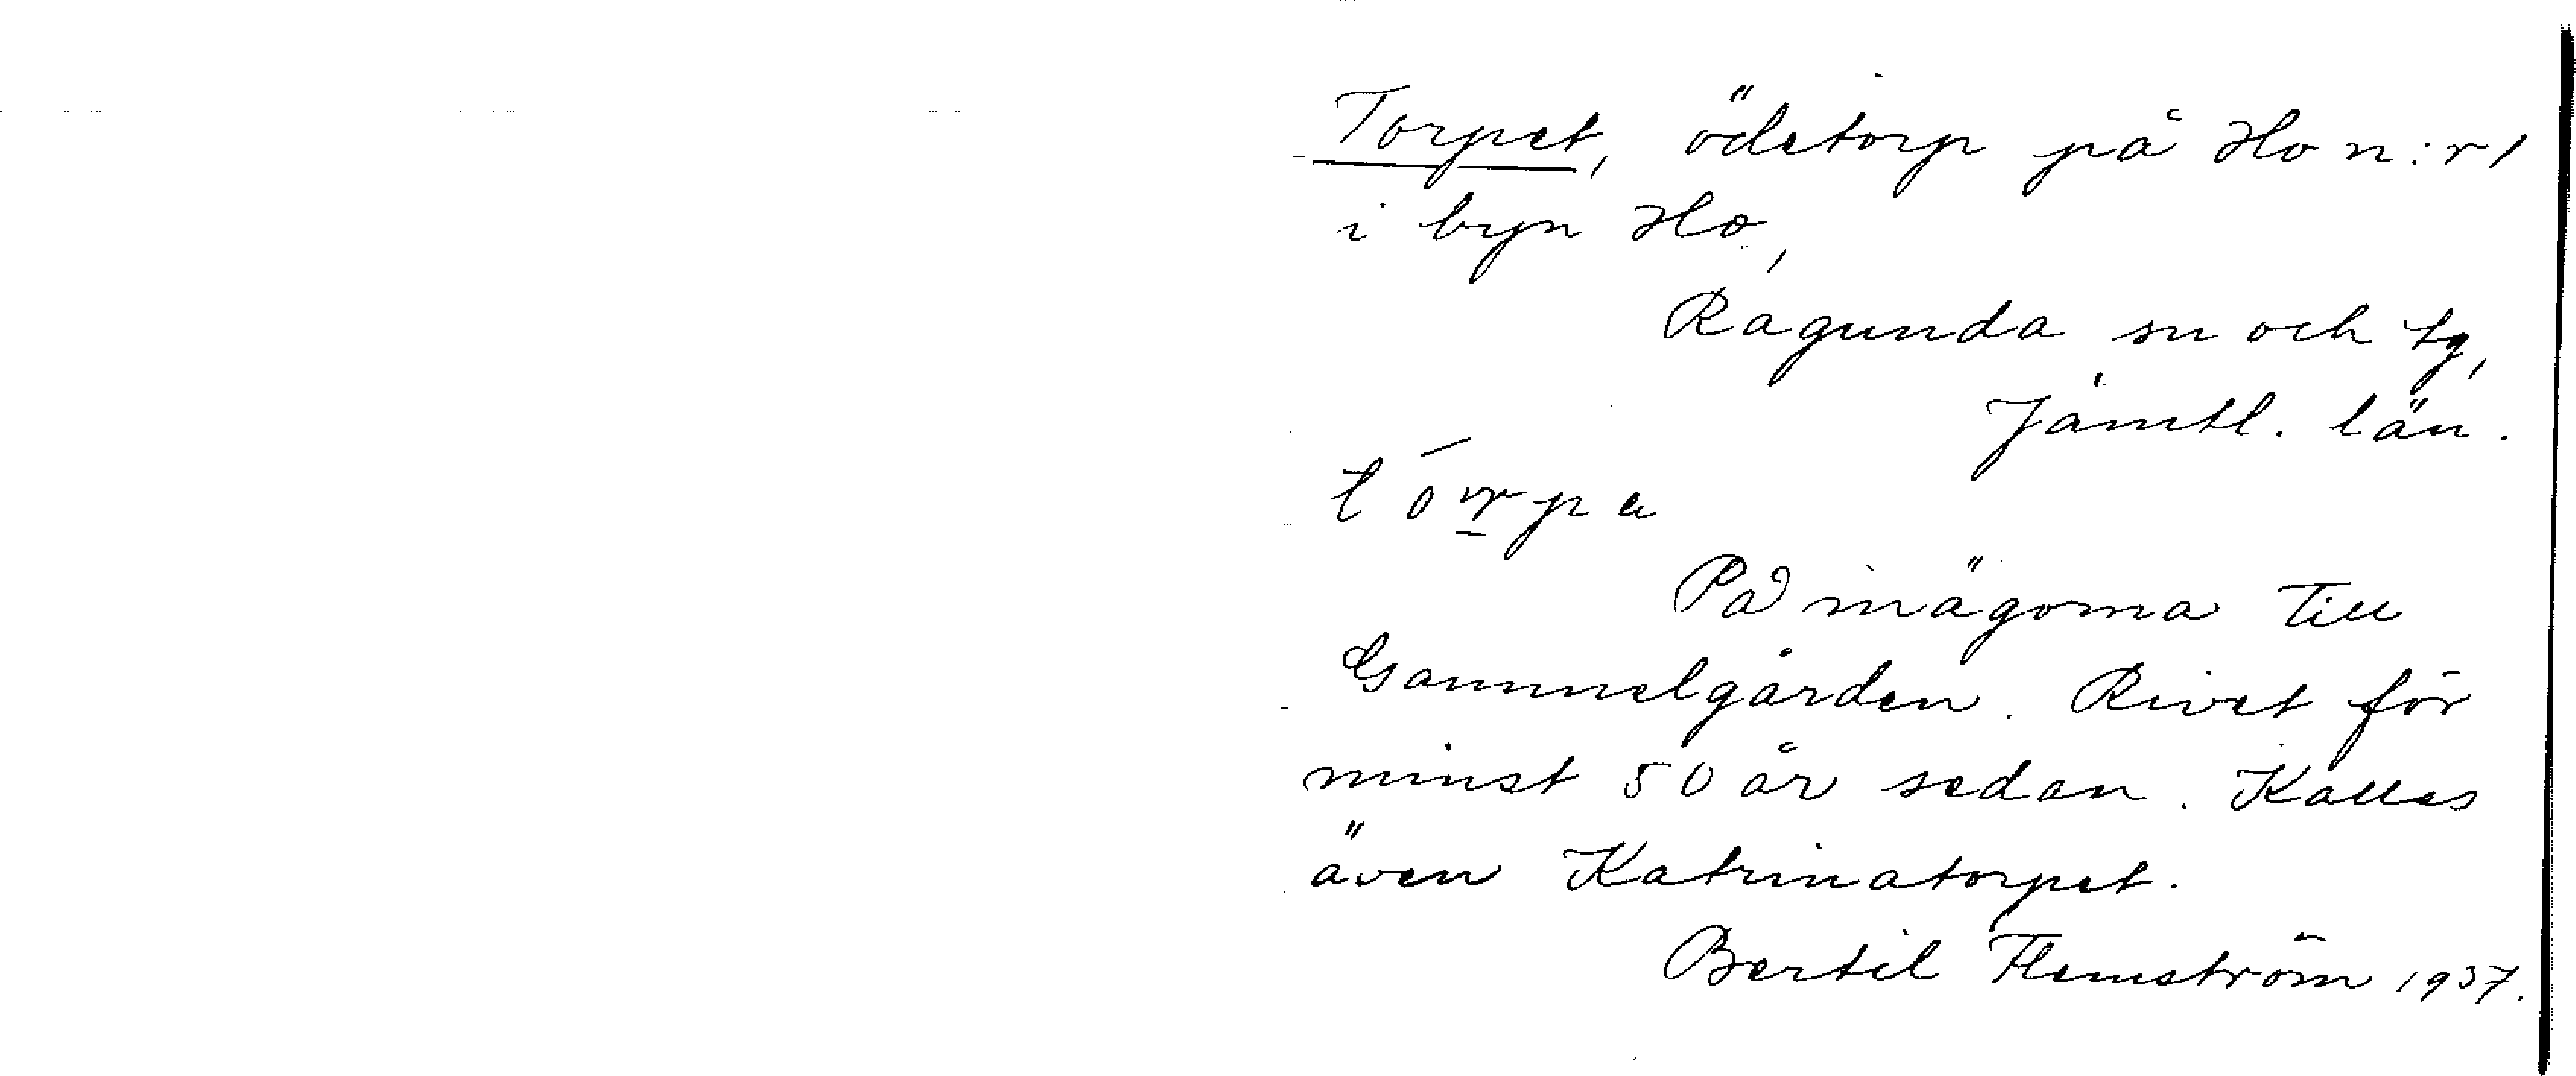 Torpet, ödetorp på Ho n:r 1
i byn Ho,
Ragunda sn och tg,
Jämtl. län.
På inägorna till
Gammelgården. Rivet för
minst 50 år sedan. Kallas
även Katrinatorpet.
Bertil Flemström 1937.